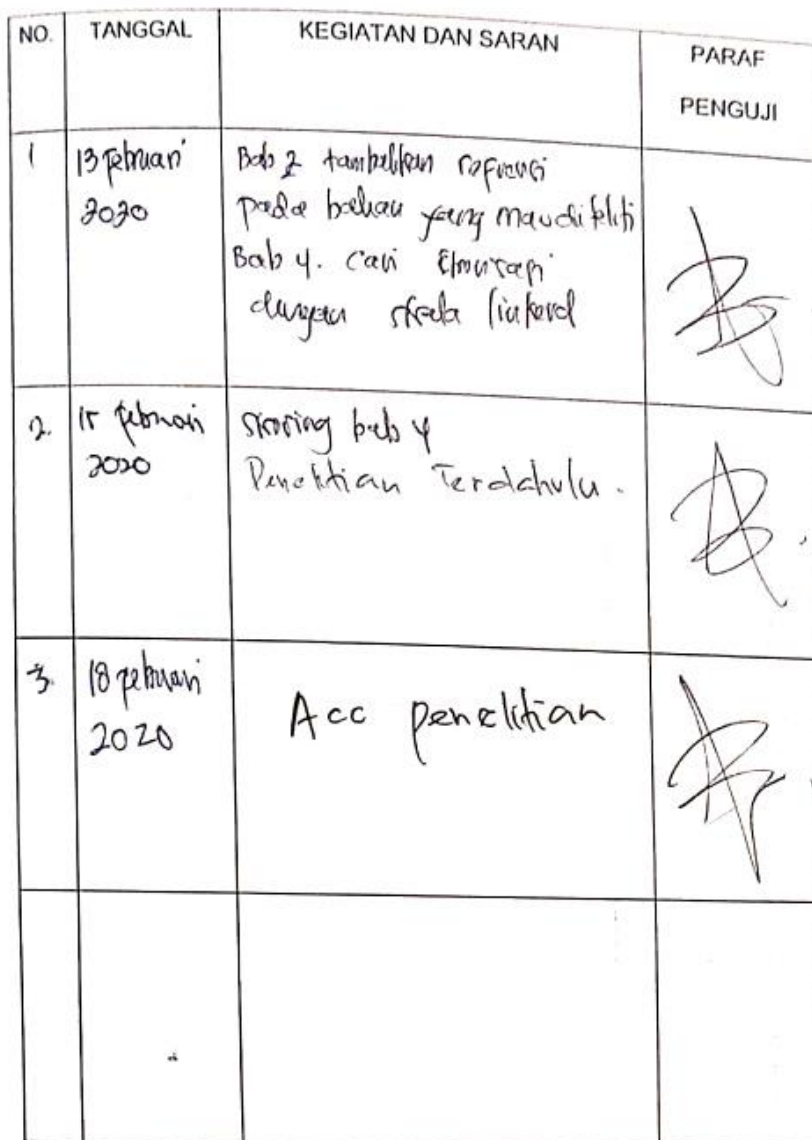 NO. TANGGAL KEGIATAN DAN SARAN PARAF
PENGUJI
1 13 Februari Bab 2 tambahkan refrensi
2020 pada bahan yang mau diteliti
Bab 4. cari
dengan skala linkerd
2. Februari skoring bab 4
2020 Penelitian Terdahulu.
3. 18 Februari Acc penelitian
2020